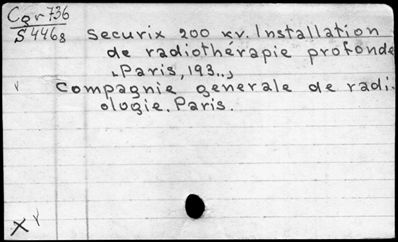 Cgr736
S4468
Securix 200 kv. Installation
de radiothérapie profonde
Paris, 193..,
Compagnie generale de radi-
ologie. Paris.
X